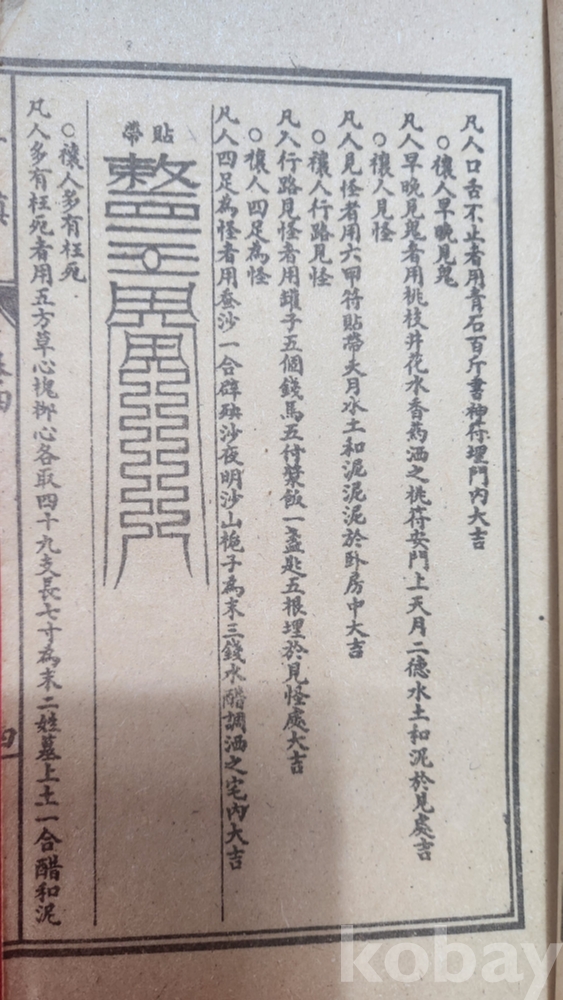 凡人口舌不止者用青石百斤書神符埋門內大吉
○禳人早晚見鬼
凡人早晚見鬼者用桃枝井花水香药洒之桃符安門上天月二德水土和泥於見處吉
○禳人見怪
凡人見怪者用六甲符貼帶天月水土和泥泥泥於卧房中大吉
○禳人行路見怪
凡人行路見怪者用罐子五個錢馬五付漿飯一盞匙五根埋於見怪處大吉
○禳人四足為怪
凡人四足為怪者用蚕沙一合辟殃沙夜明沙山梔子為末三錢水醋調洒之宅內大吉
貼帶
敕
○禳人多有枉死
凡人多有枉死者用五方草心槐柳心各取四十九支長七寸為末二姓墓上土一合醋和泥
四
kobay